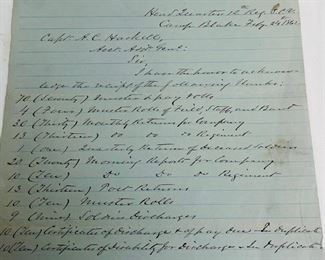 Head Quarters 12th Reg. C.V.
Camp Blake Feby 24th 1862
Capt. A.C. Hackett,
Asst. Adjt. Genl:
Sir,
I have the honor to acknow-
ledge the receipt of the following blanks:
70 (Seventy) Muster & pay Rolls
4 (Four) Muster Rolls of Field, Staff, and Band
30 (Thirty) Monthly Returns for Company
13 (Thirteen) do do do Regiment
1 (One) Quarterly Return of Deceased Soldiers
20 (Twenty) Morning Reports for Company
10 (Ten) Do Do Regiment
13 (Thirteen) Post Returns
10 (Ten) Muster Rolls
9 (Nine) Soldiers Discharges
10 (Ten) Certificates of Discharge & of pay due - In Duplicate
10 (Ten) Certificates of Disability for Discharge - In Duplicate